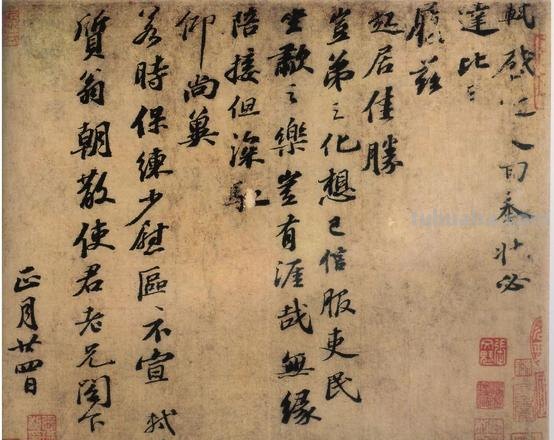 軾啓人回奉狀必
達比日
履茲
起居佳勝
豈弟之化想已信服吏民
坐歗之樂豈有涯哉無緣
陪接但深馳
仰尚冀
若時保練少慰區々不宣 軾
質翁朝散使君老兄閣下
正月廿四日